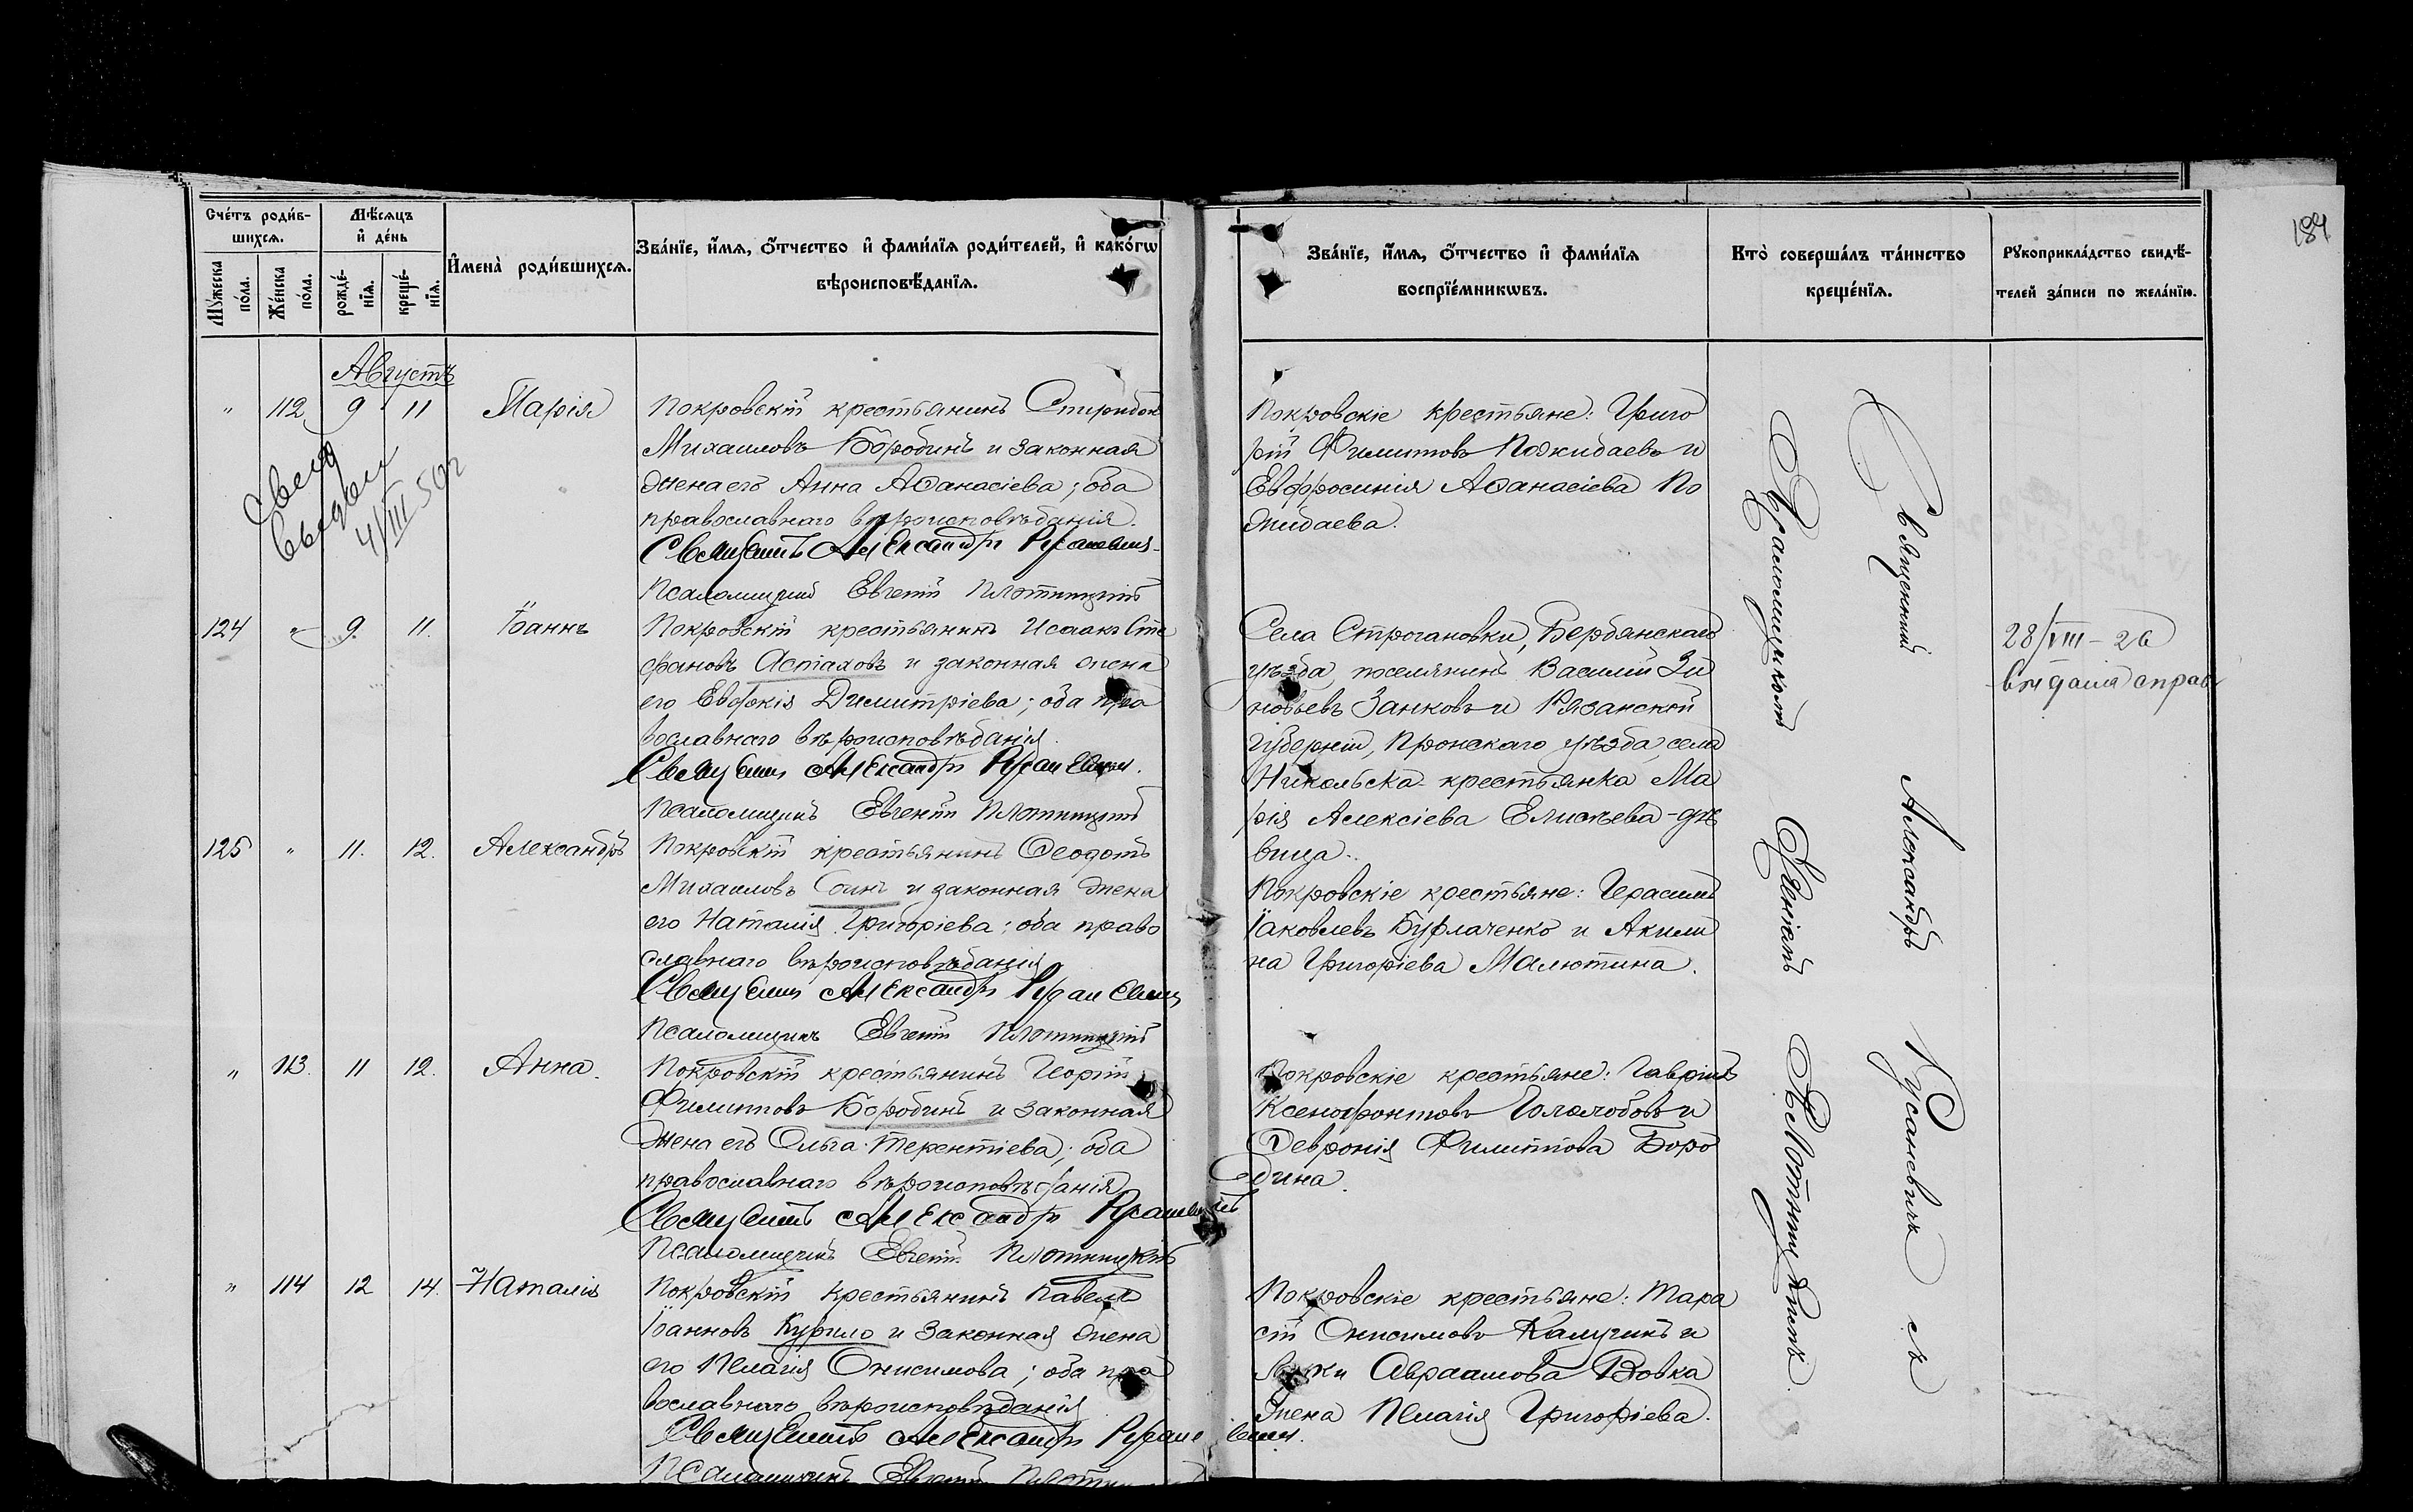 189
Счетъ родив-
шихся.
Мѣсяцъ
и день
Имена родившихся.
Званіе, имя, отчество и фамилія родителей, и какогѡ
вѣроисповѣданія.
Званіе, имя, отчество и фамилія
воспріемникѡвъ.
Кто совершалъ таинство
крещенія.
Рукоприкладство свидѣ-
телей записи по желанію.
Мужеска
пола.
Женска
пола.
рожде-
нія.
креще-
нія.
Августъ
" 112 9 11 Марія
Покровскій крестьянинъ Спиридонъ
Михаиловъ Бородинъ и законная
жена его Анна Аѳанасіева; оба
православнаго вѣроисповѣданія.
Священникъ Александръ Русаневичъ
Псаломщикъ Евгеній Плотницкій
Покровскіе крестьяне: Григо
рій Филиповъ Пожидаевъ и
Евфросинія Аѳанасіева По
жидаева.
4/III 50 г
124 " 9. 11. Іоаннъ
Покровскій крестьянинъ Исаакъ Сте
фановъ Астаховъ и законная жена
его Евдокія Димитріева; оба пра
вославнаго вѣроисповѣданія.
Священникъ Александръ Русаневичъ.
Псаломщикъ Евгеній Плотницкій
Села Строгановки, Бердянскаго
уѣзда поселянинъ Василій Зи
новьевъ Занковъ и Рязанской
губерніи, Пронскаго уѣзда, села
Никольска крестьянка Ма
рія Алексіева Елисѣева - дѣ
вица.
28/VIII - 26
выдана справ
125 " 11. 12. Александръ
Покровскій крестьянинъ Ѳеодотъ
Михаиловъ Соинъ и законная жена
его Наталія Григоріева; оба право
славнаго вѣроисповѣданія
Священникъ Александръ Русаневичъ
Псаломщикъ Евгеній Плотницкій
Покровскіе крестьяне: Герасимъ
Іаковлевъ Бурлаченко и Акили
на Григоріева Малютина.
" 113. 11 12. Анна.
Покровскій крестьянинъ Георгій
Филипповъ Бородинъ и законная
жена его Ольга Терентіева; оба
православнаго вѣроисповѣданія
Священникъ Александръ Русаневичъ
Псаломщикъ Евгеній Плотницкій
Покровскіе крестьяне: Гавріилъ
Ксенофонтовъ Гололобовъ и
Февронія Филиппова Боро
дина.
" 114 12 14. Наталія
Покровскій крестьянинъ Павелъ
Іоанновъ Курило и законная жена
его Пелагія Онисимова; оба пра
вославнаго вѣроисповѣданія
Священникъ Александръ Русаневичъ.
Псаломщикъ Евгеній
Покровскіе крестьяне: Тара
сій Онисимовъ Калугинъ и
Авраамова Вовка
жена Пелагія Григоріева.
Священникъ Александръ Русаневичъ съ
Псаломщикомъ Евгеніемъ Плотницкимъ.